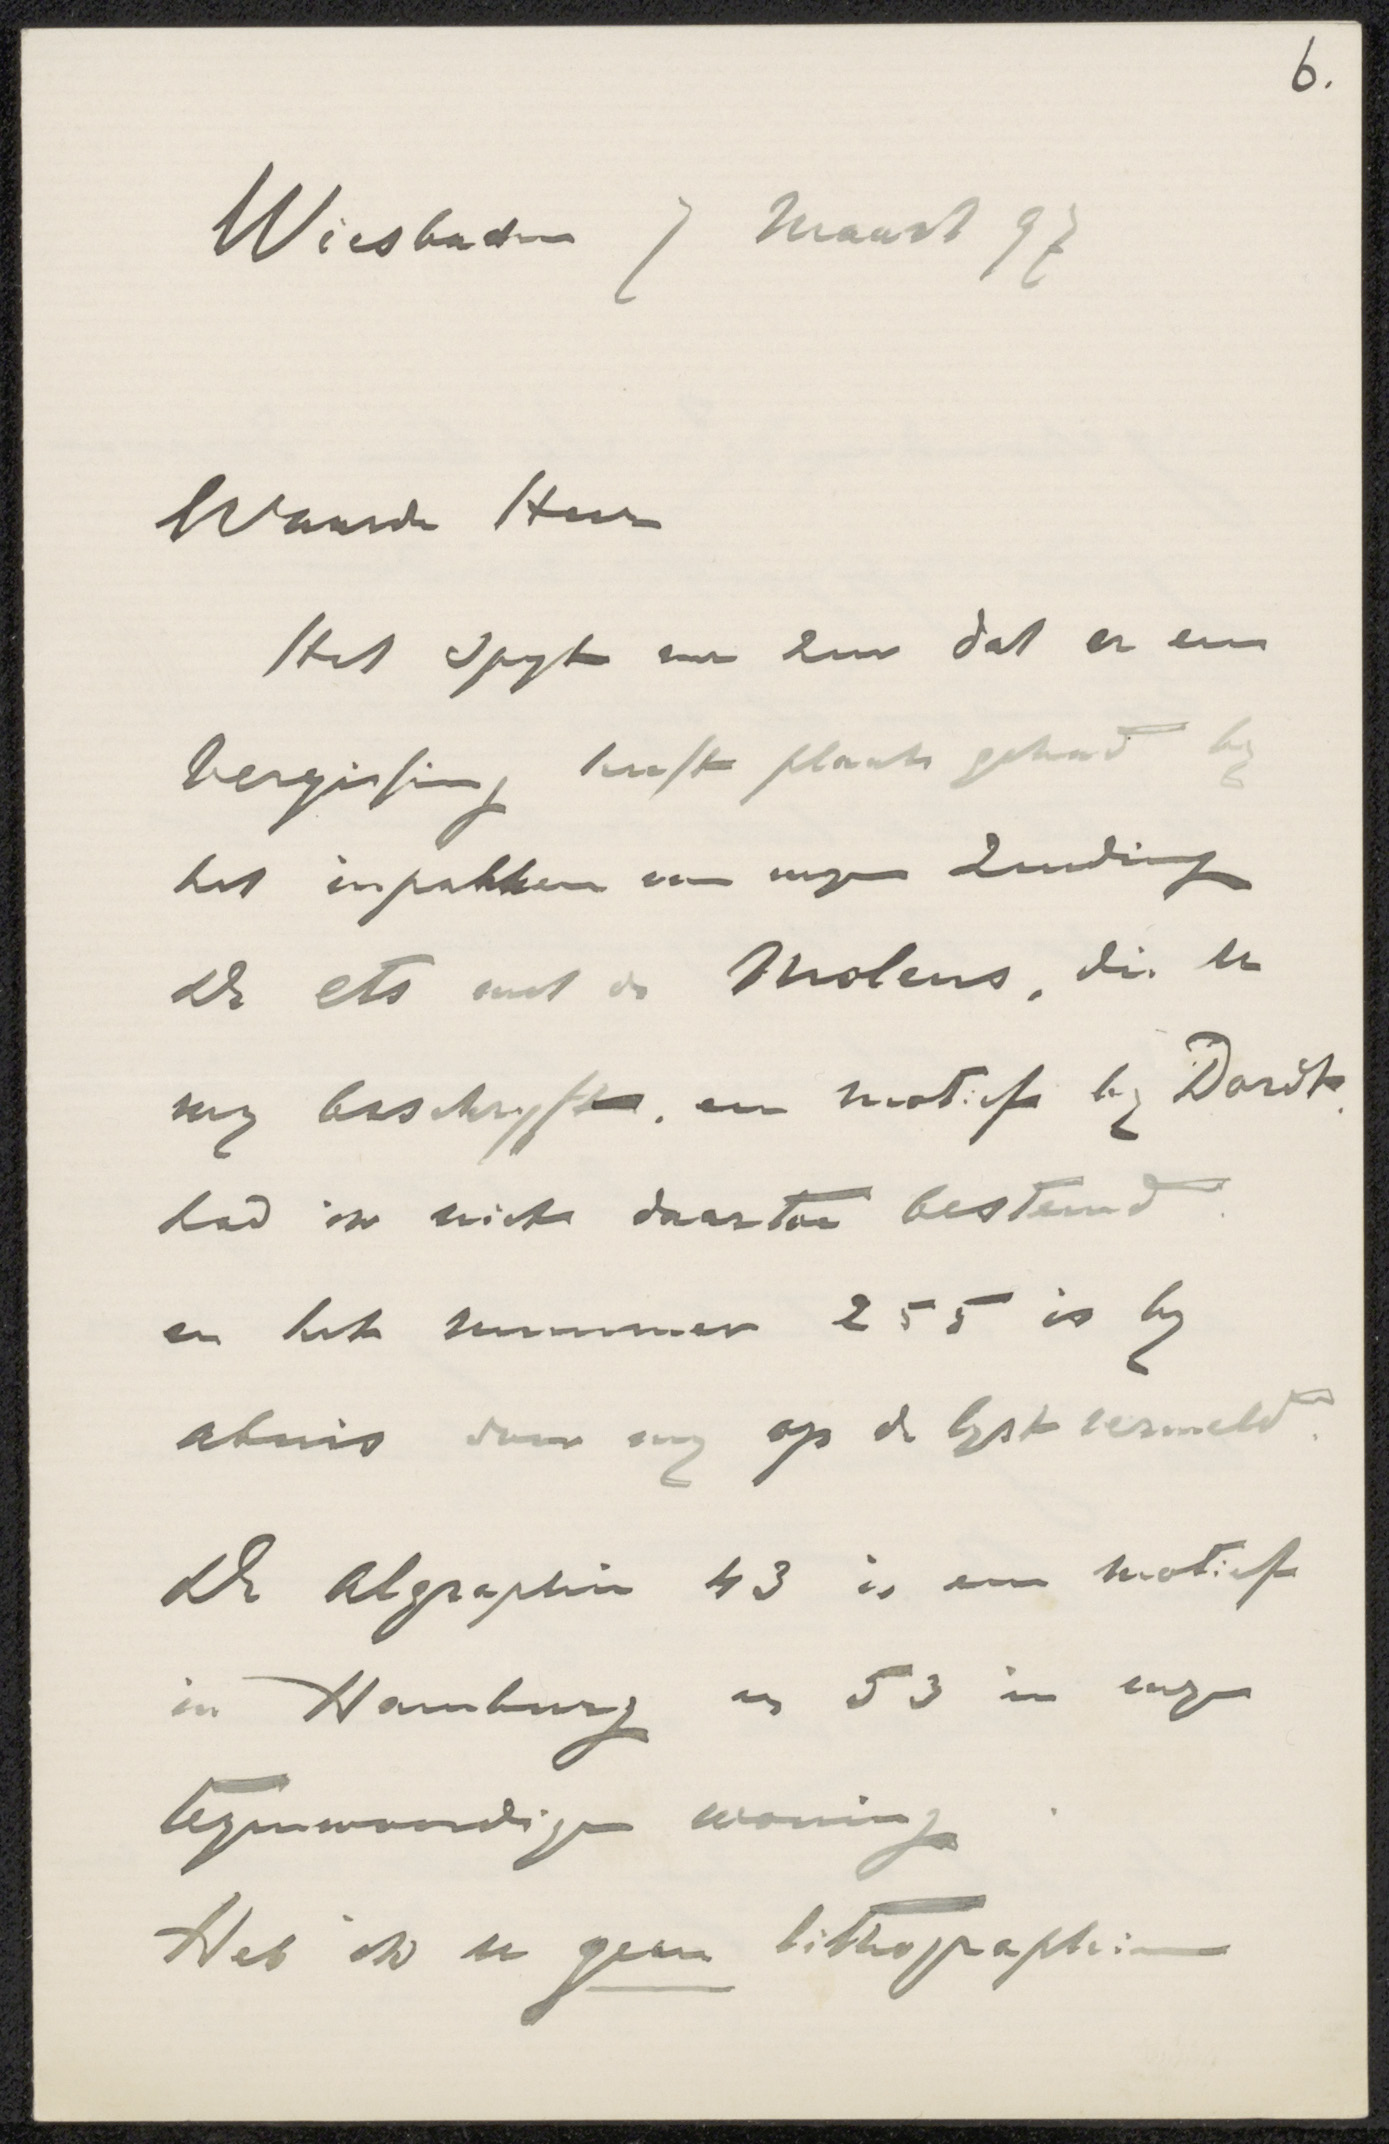 6.
Wiesbaden 7 Maart 97
Waarde Heer
Het spyt me zeer dat er een
Vergissing heeft plaats gehad by
het inpakken van myn Zending
De ets met de Molens, die u
my beschryft, een motief by Dordt,
had ik niet daartoe bestemd.
en het nummer 255 is by
abuis door my op de lyst vermeld.
De Algraphie 43 is een motief
in Hamburg en 53 in myn
tegenwoordige woning.
Heb ik u geen lithographien